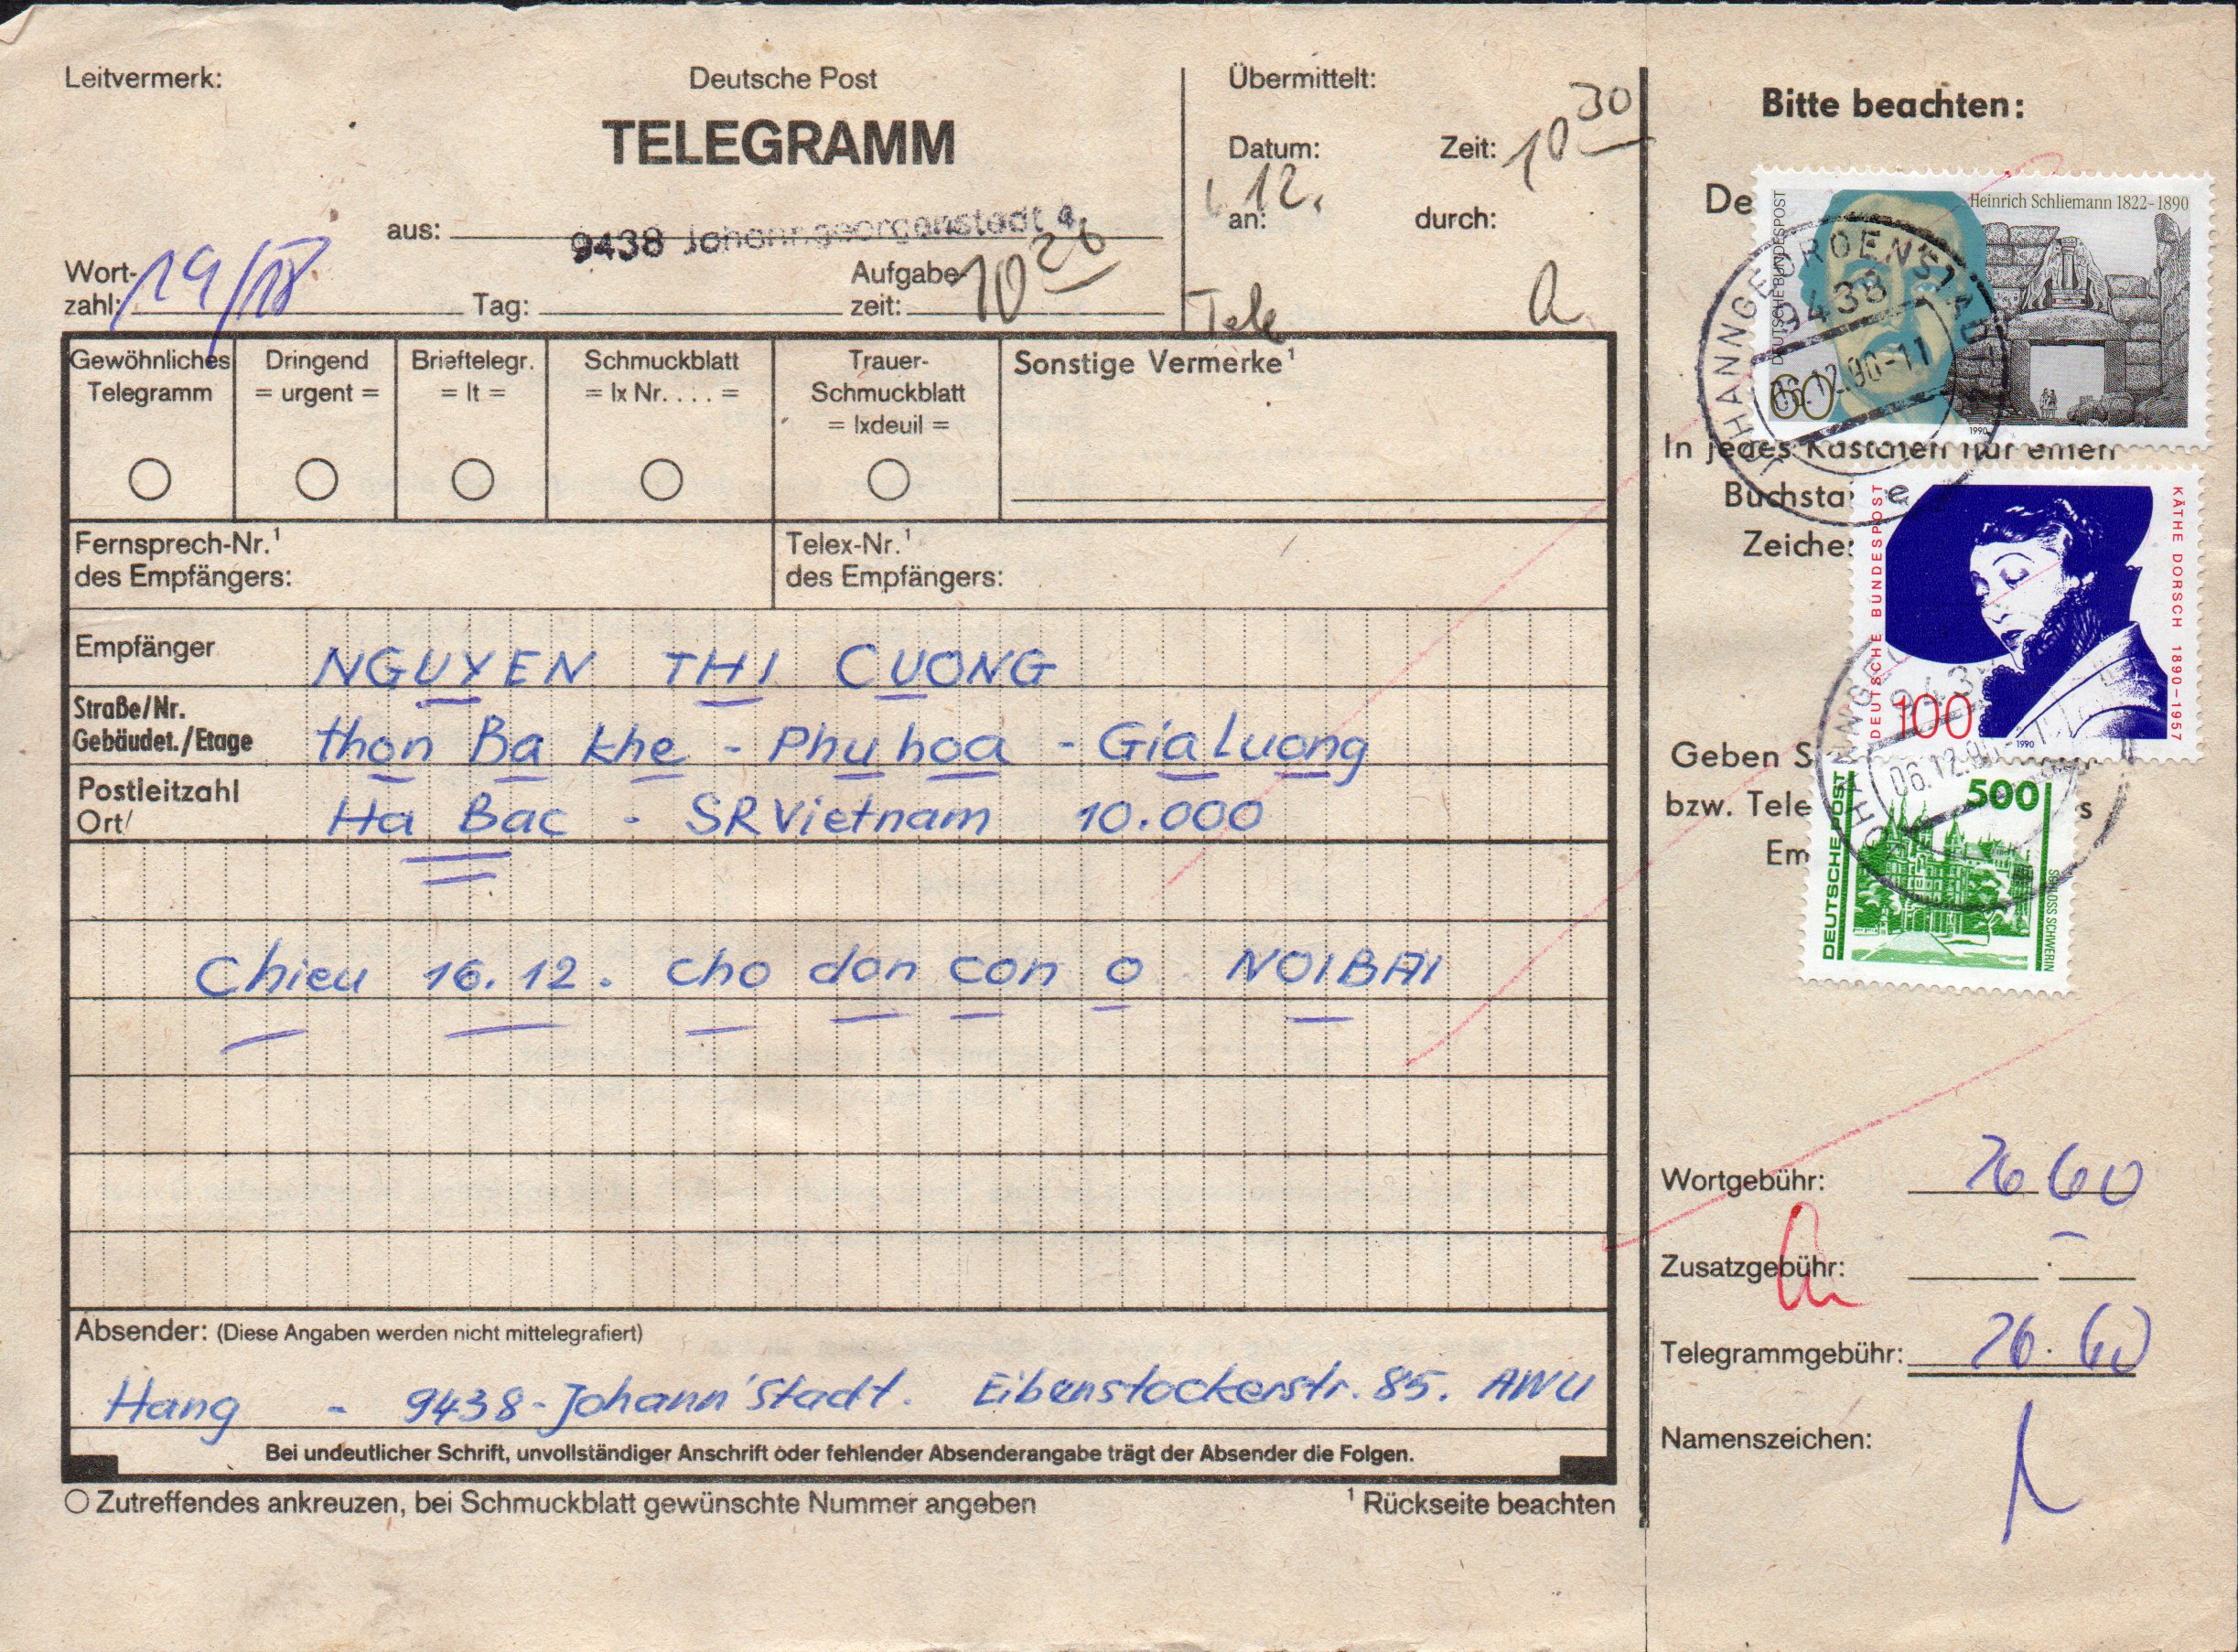 Leitvermerk:
Deutsche Post
TELEGRAMM
aus: 9438 Johanngeorgenstadt
Wort-
zahl: 19/18
Tag:
Aufgabe-
zeit: 10 26
Übermittelt:
Datum: 12.
Zeit: 10 30
an: Tele
durch:
Gewöhnliches
Telegramm
Dringend
= urgent =
Brieftelegr.
= lt =
Schmuckblatt
= lx Nr. . . . =
Trauer-
Schmuckblatt
= lxdeuil =
Sonstige Vermerke¹
Fernsprech-Nr.¹
des Empfängers:
Telex-Nr.¹
des Empfängers:
Empfänger NGUYEN THI CUONG
Straße/Nr.
Gebäudet./Etage thon Ba khe - Phu hoa - Gia luong
Postleitzahl
Ort/ Ha Bac - SRVietnam 10.000
Chieu 16.12. cho don con o NOIBAI
Absender: (Diese Angaben werden nicht mittelegrafiert)
Hang - 9438-Johann'stadt. Eibenstockerstr. 85. AWU
Bei undeutlicher Schrift, unvollständiger Anschrift oder fehlender Absenderangabe trägt der Absender die Folgen.
Zutreffendes ankreuzen, bei Schmuckblatt gewünschte Nummer angeben
¹ Rückseite beachten
Bitte beachten:
De
Heinrich Schliemann 1822-1890
DEUTSCHE BUNDESPOST
60
1990
9438
06.12.90-11
In jedes Kästchen nur einen
Buchsta e
Zeiche
KÄTHE DORSCH 1890-1957
DEUTSCHE BUNDESPOST
100
1990
06.12.90
Geben S
bzw. Tele s
Em
500
DEUTSCHE POST
SCHLOSS SCHWERIN
Wortgebühr: 26 60
Zusatzgebühr:
Telegrammgebühr: 26.60
Namenszeichen: